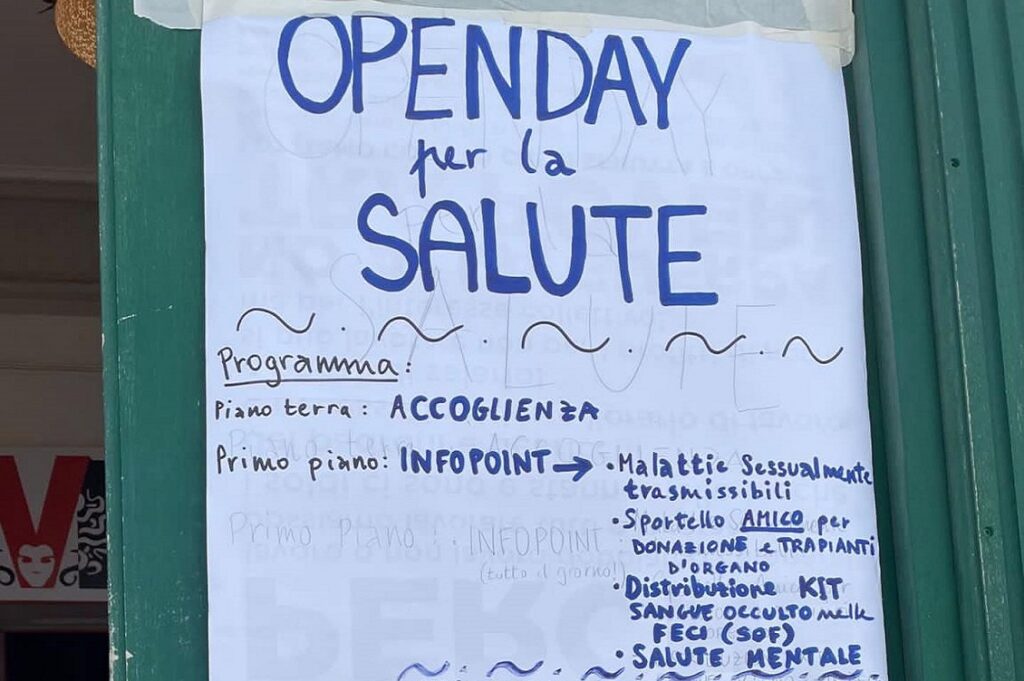 OPENDAY
per la
SALUTE
Programma:
Piano terra: ACCOGLIENZA
Primo piano: INFOPOINT → • Malattie Sessualmente
trasmissibili
• Sportello AMICO per
DONAZIONE e TRAPIANTI
D'ORGANO
• Distribuzione KIT
SANGUE OCCULTO nelle
FECI (SOF)
• SALUTE MENTALE
Primo Piano: • INFOPOINT
(tutto il giorno!)